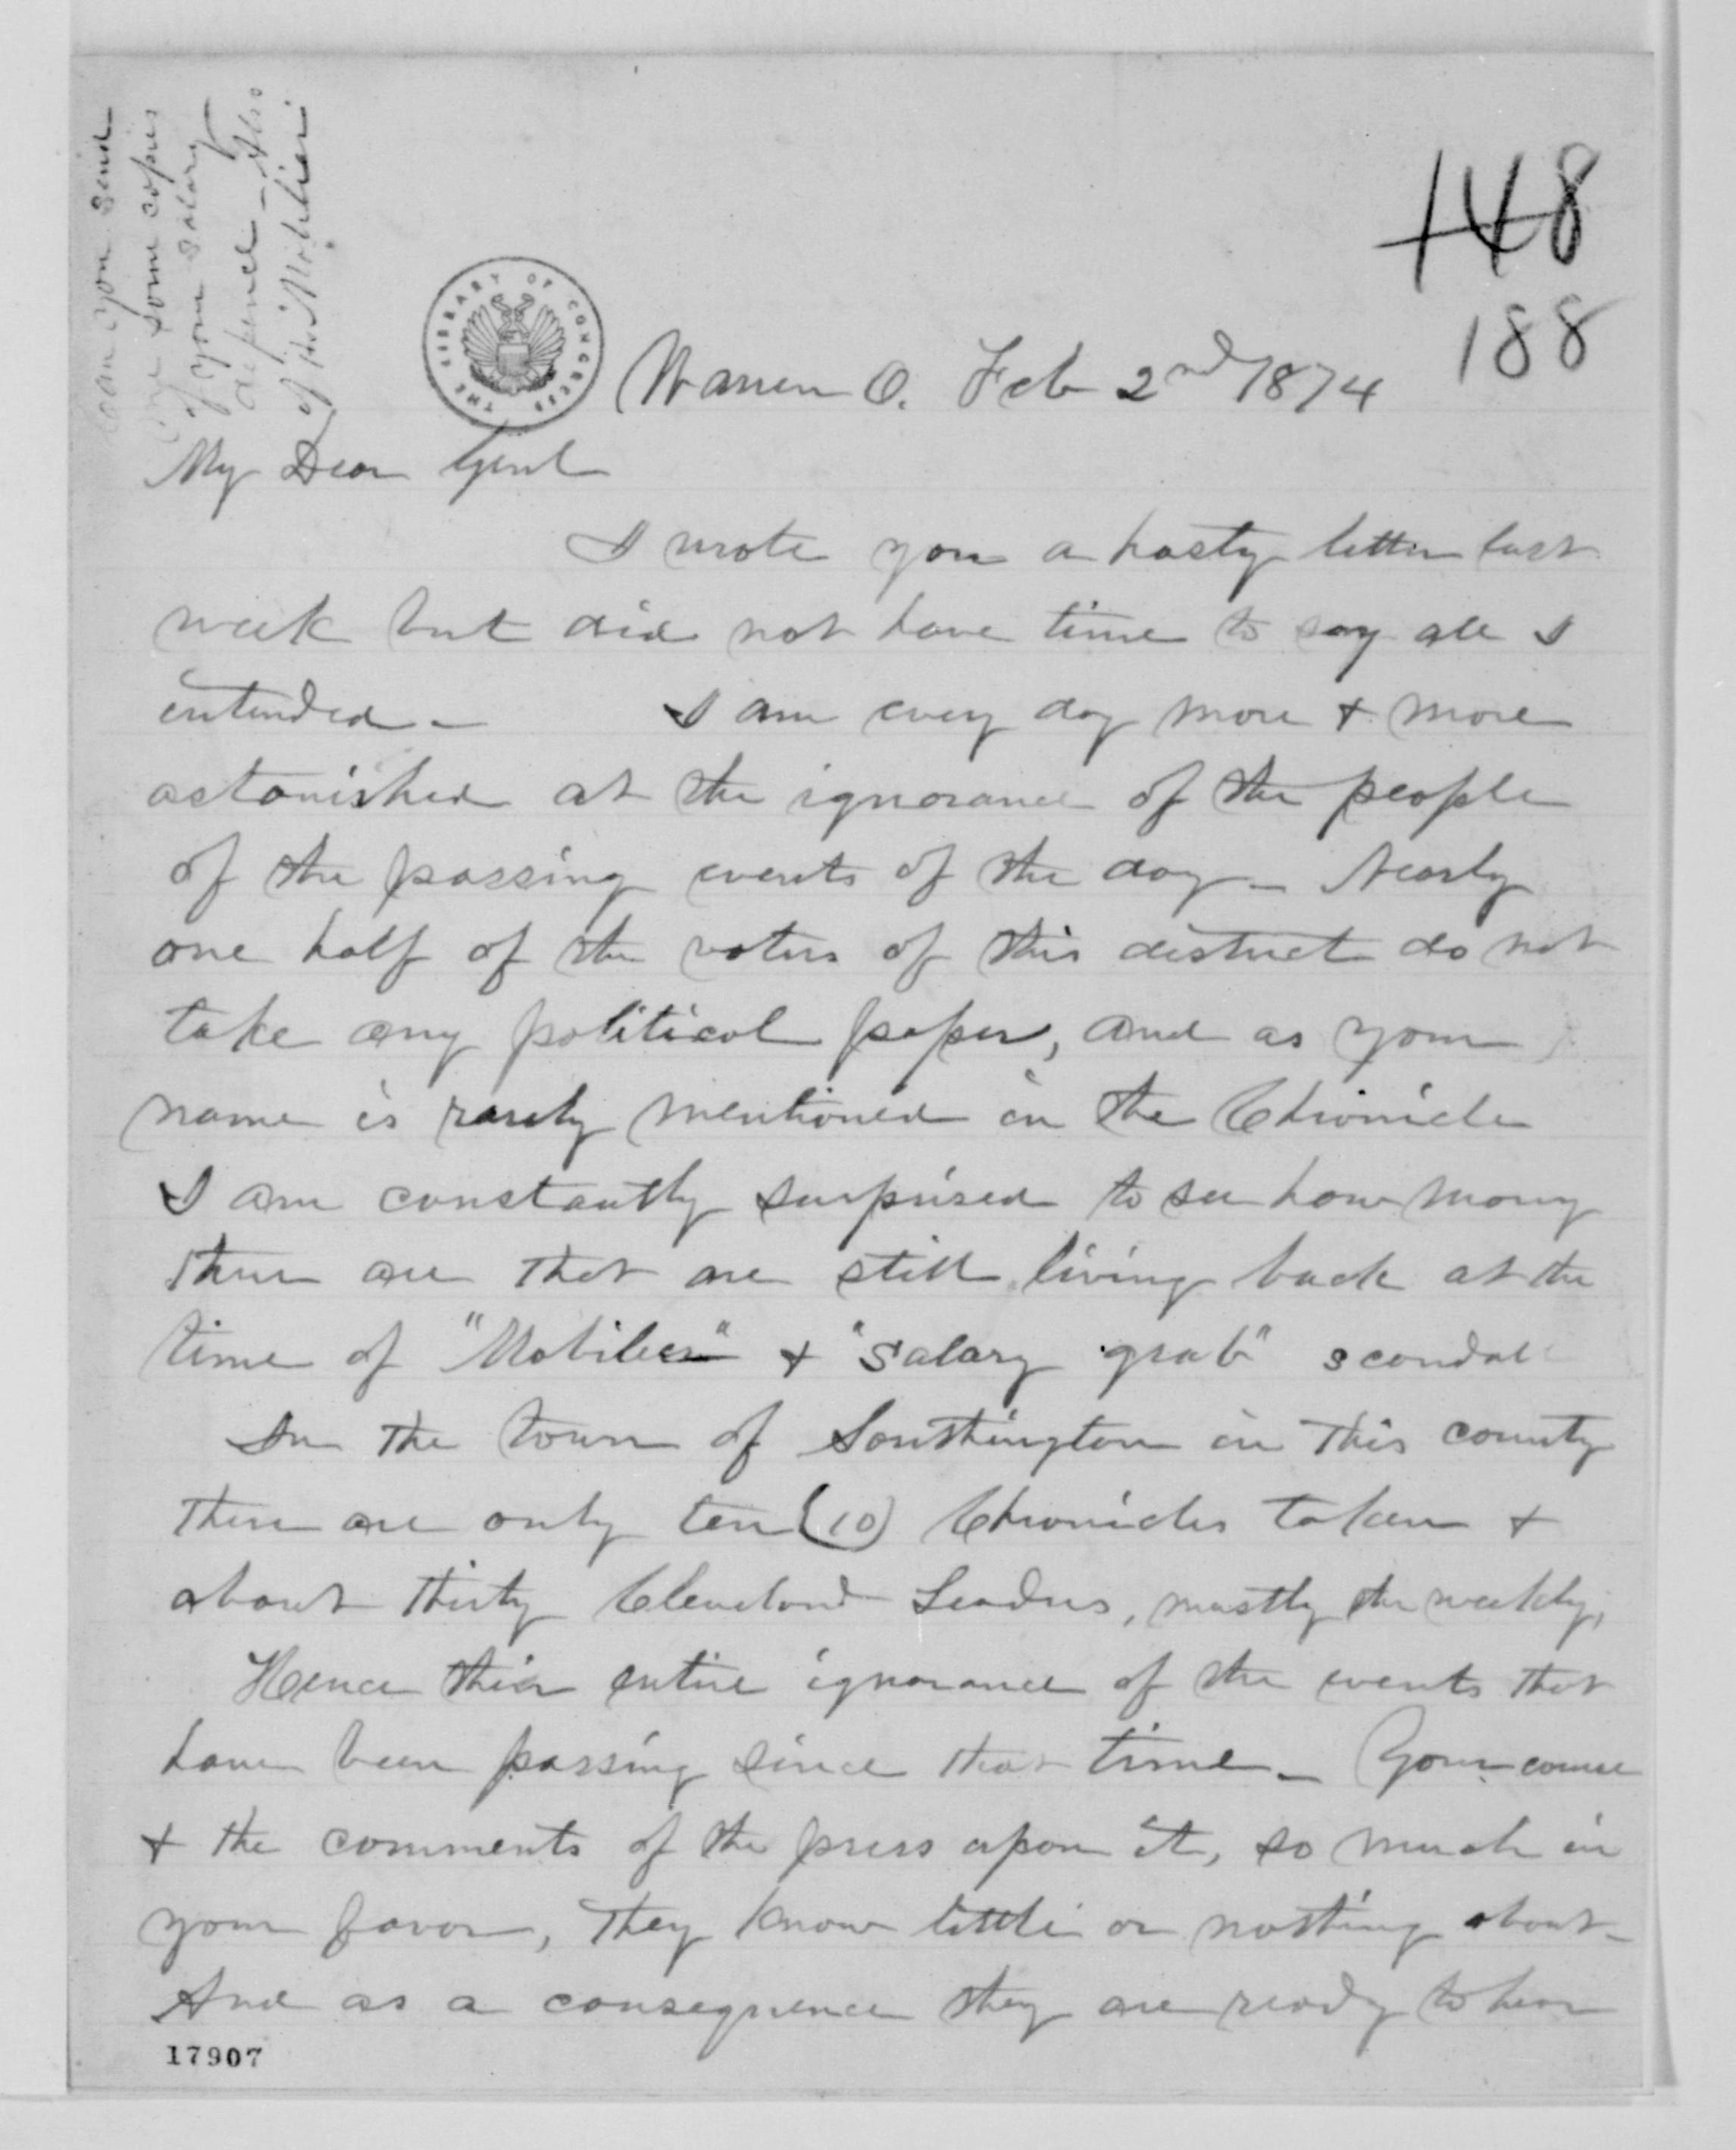 Can you send
me some copies
of your salary
defence - Also
of the Mobilier
148
188
THE LIBRARY OF CONGRESS
Warren O. Feb 2nd 1874
My Dear Genl
I wrote you a hasty letter last
week but did not have time to say all I
intended - I am every day more + more
astonished at the ignorance of the people
of the passing events of the day - Nearly
one half of the voters of this district do not
take any political paper, and as your
name is rarely mentioned in the Chronicle
I am constantly surprised to see how many
there are that are still living back at the
time of "Mobilier" + "Salary grab" scandal
In the town of Southington in this county
there are only ten (10) Chronicles taken +
about thirty Cleveland Leaders, mostly the weekly,
Hence their entire ignorance of the events that
have been passing since that time - Your course
+ the comments of the press upon it, so much in
your favor, they know little or nothing about -
And as a consequence they are ready to hear
17907